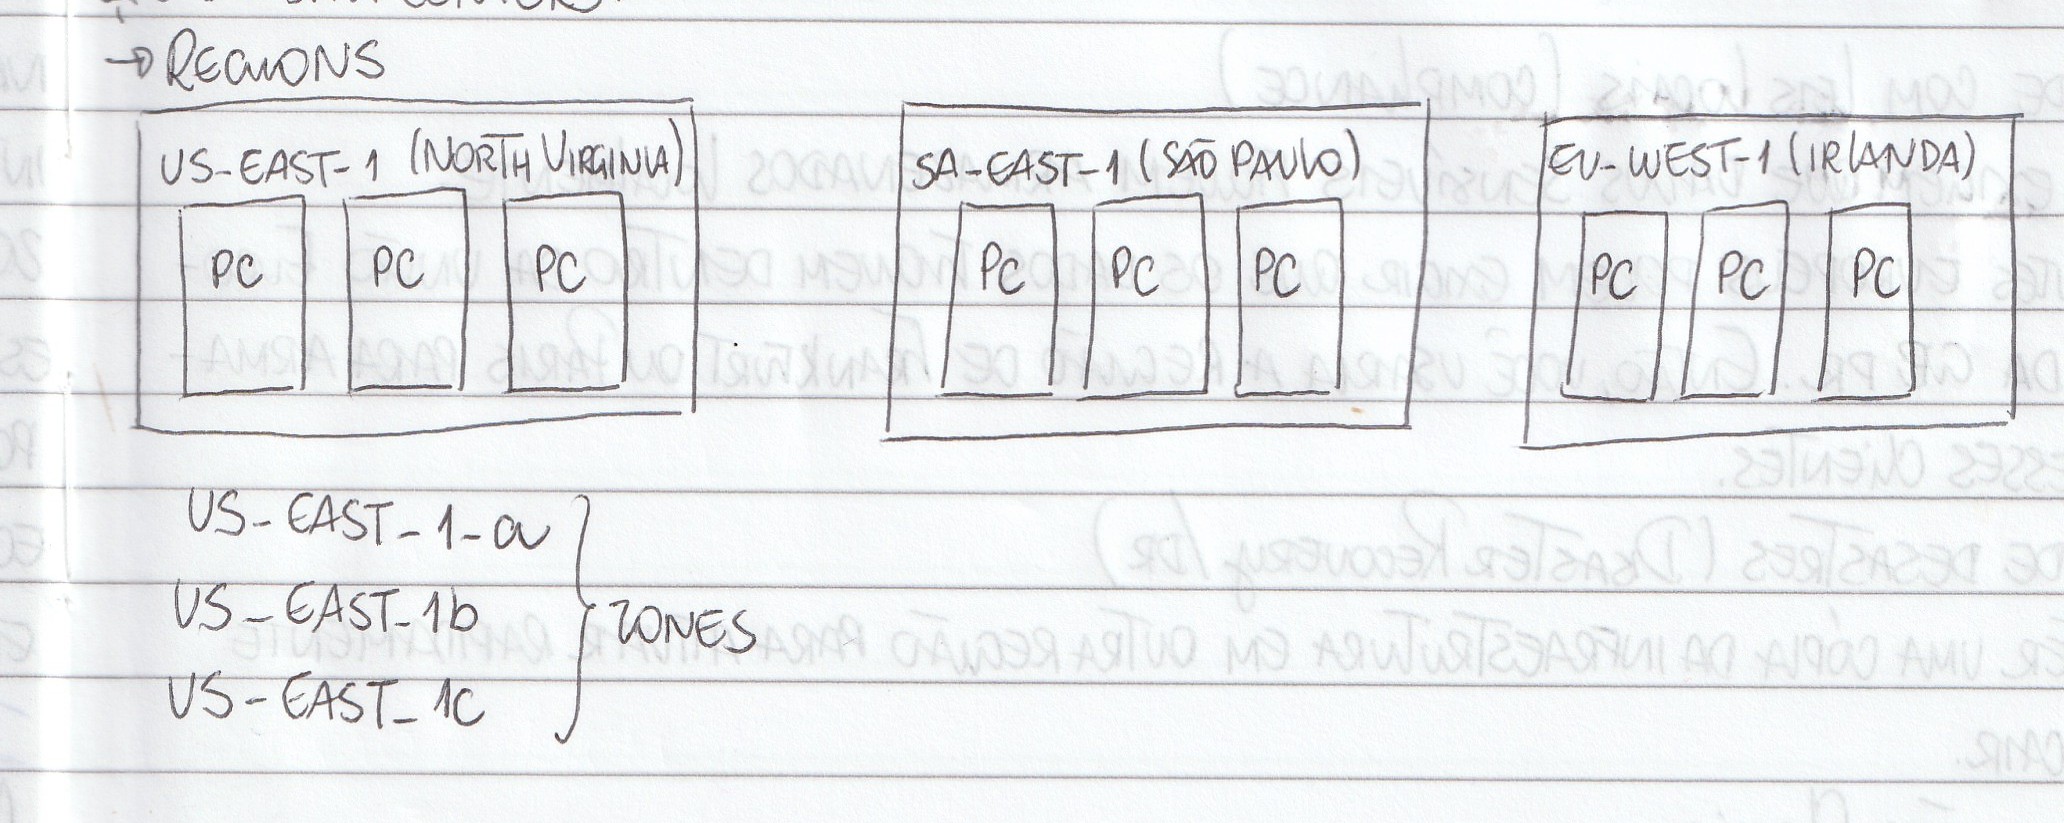 → REGIONS
US-EAST-1 (NORTH VIRGINIA)
PC PC PC
SA-EAST-1 (SÃO PAULO)
PC PC PC
EU-WEST-1 (IRLANDA)
PC PC PC
US-EAST-1-a
US-EAST-1b
US-EAST-1c
ZONES